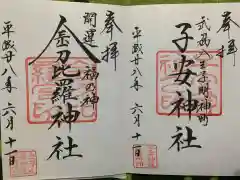 奉拝
武州八王子明神町
子安神社
平成廿八年 六月十一日
奉拝
開運
福の神
金刀比羅神社
平成廿八年 六月十一日